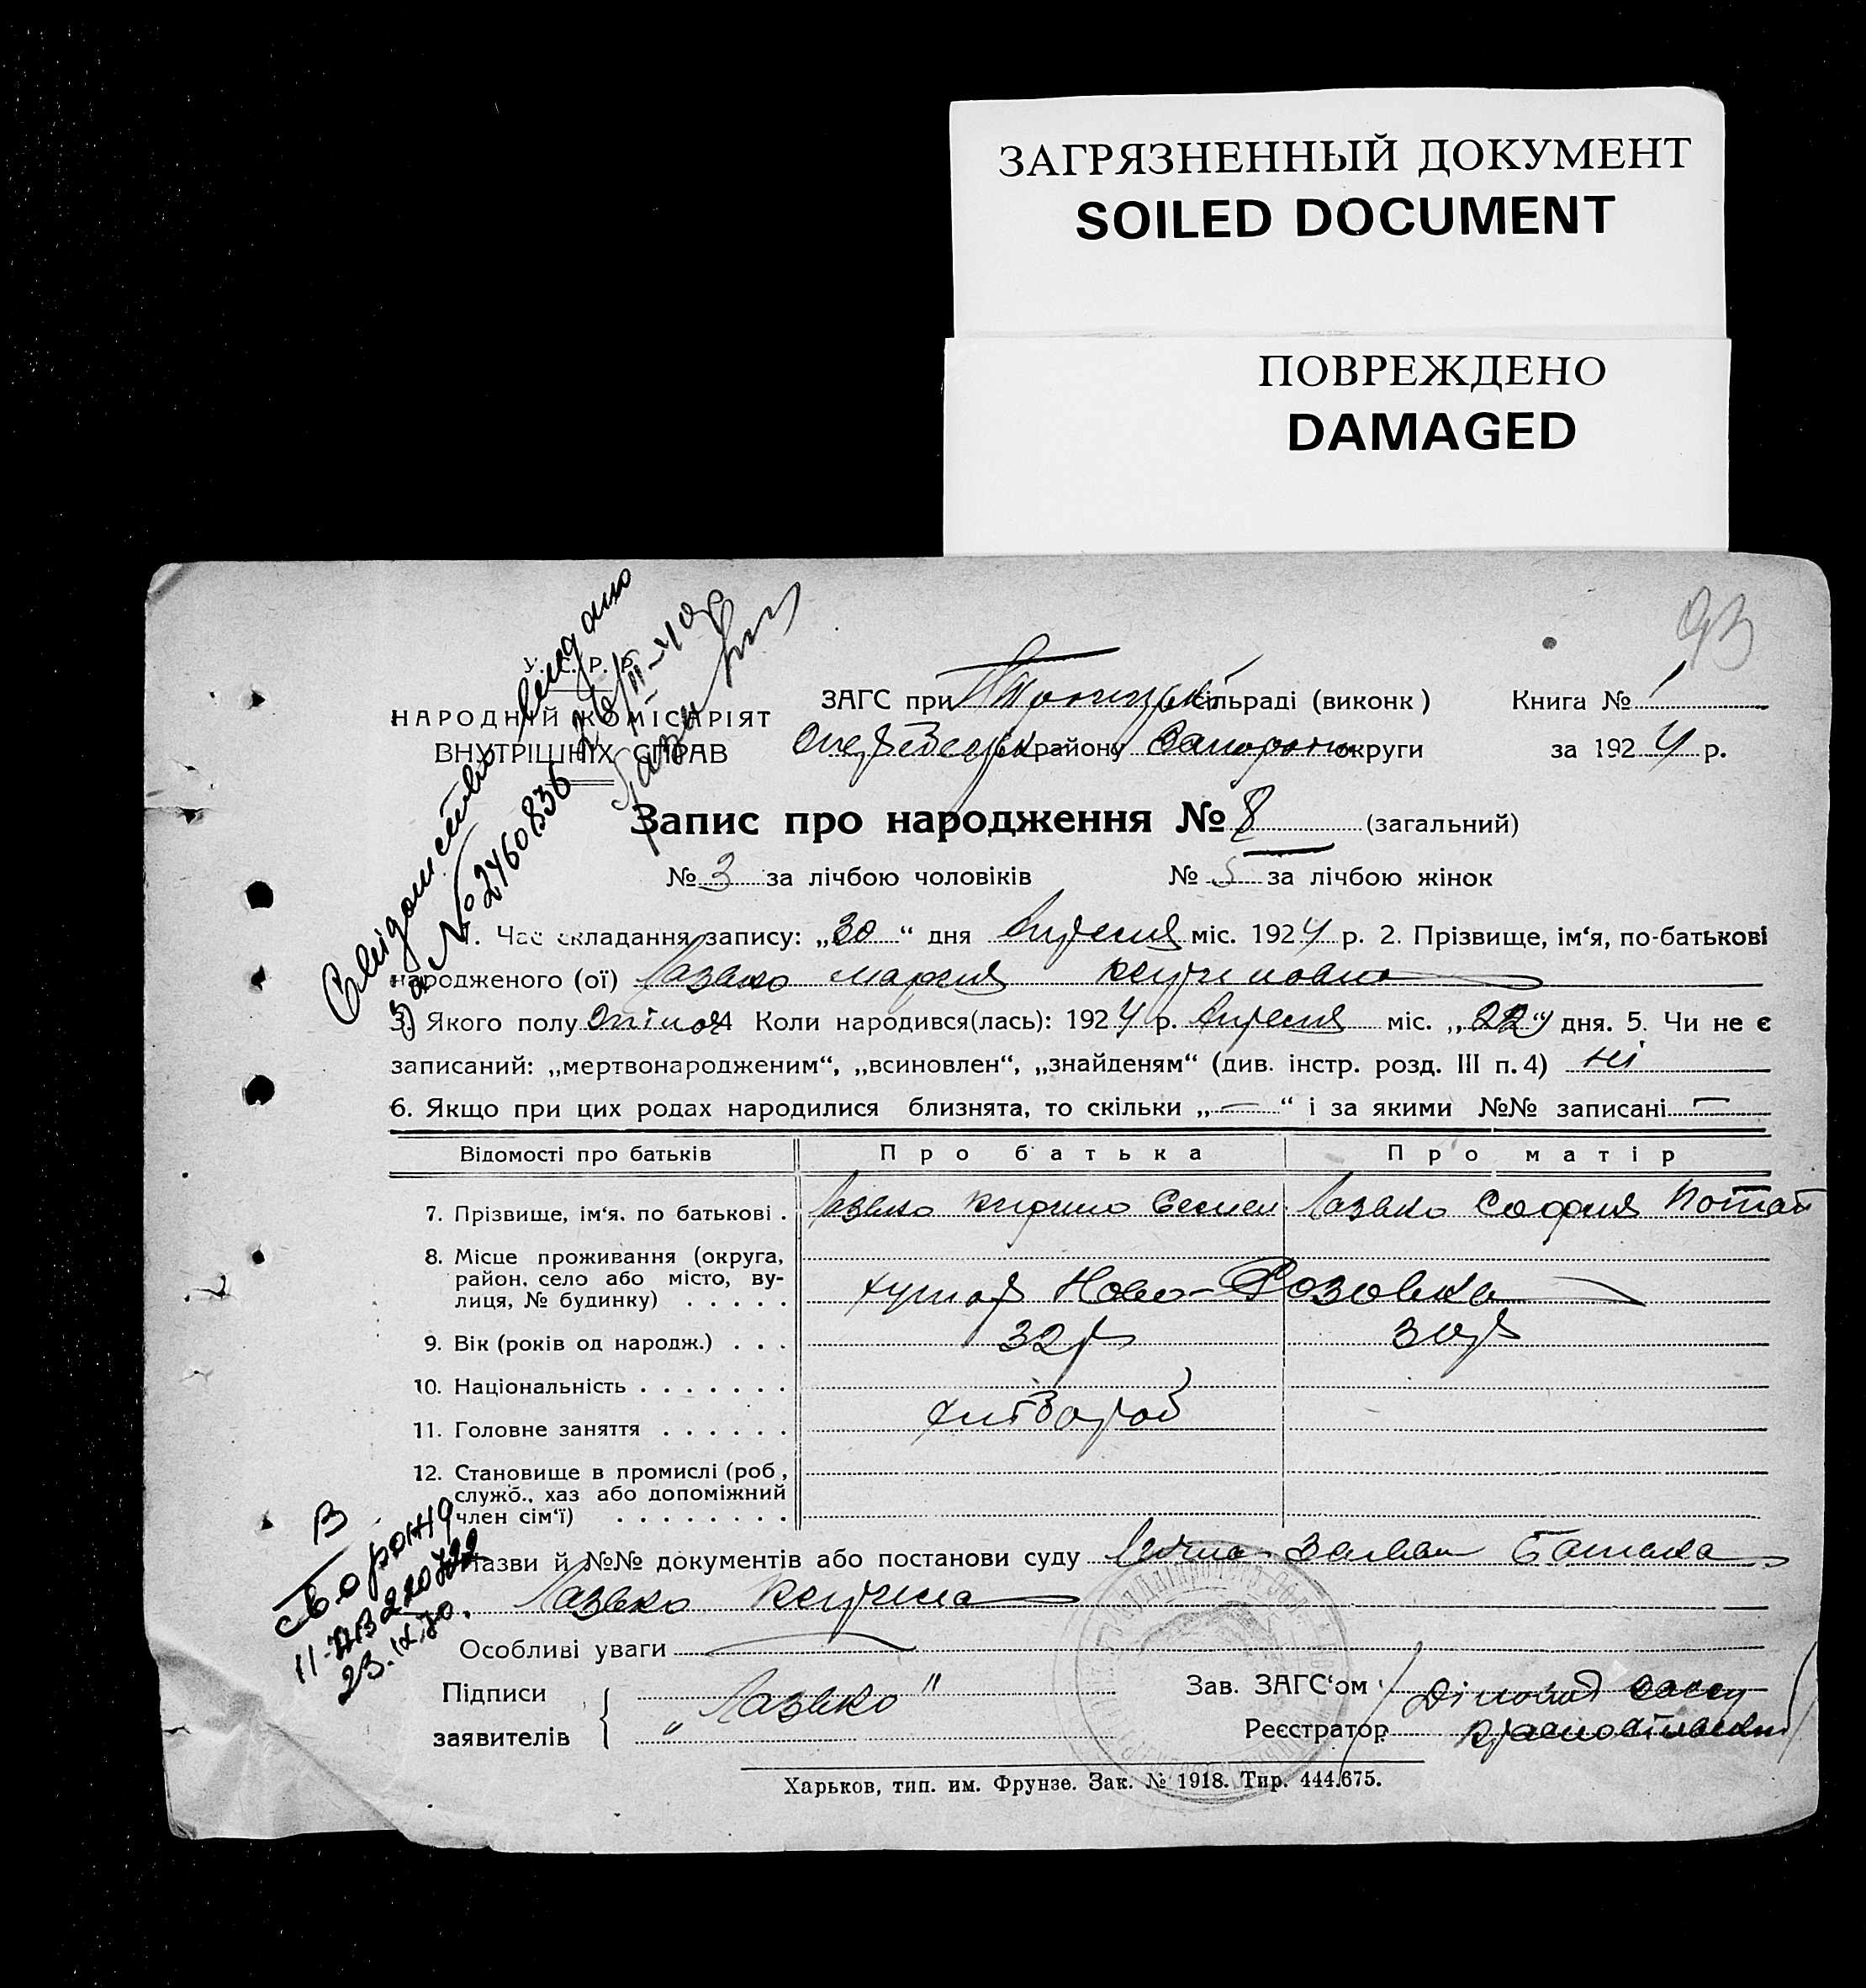 ЗАГРЯЗНЕННЫЙ ДОКУМЕНТ
SOILED DOCUMENT
ПОВРЕЖДЕНО
DAMAGED
93
У. С. Р. Р.
НАРОДНІЙ КОМІСАРІЯТ
ВНУТРІШНІХ СПРАВ
Свідоцтво видано
за № 2460836
ЗАГС при сільраді (виконк) Книга № 1
району Запорож округи за 1924 р.
Запис про народження № 8 (загальний)
№ 3 за лічбою чоловіків № 5 за лічбою жінок
1. Час складання запису: „30“ дня Вересня міс. 1924 р. 2. Прізвище, ім‘я, по-батькові
народженого (ої) Лазько Мария Кириловна
3. Якого полу жіноч 4 Коли народився(лась): 1924 р. Вересня міс. „22“ дня. 5. Чи не є
записаний: „мертвонародженим“, „всиновлен“, „знайденям“ (див. інстр. розд. III п. 4) ні
6. Якщо при цих родах народилися близнята, то скільки „—“ і за якими №№ записані —
Відомості про батьків Про батька Про матір
7. Прізвище, ім‘я, по батькові . Лазько Кирило Семен Лазько София Потап
8. Місце проживання (округа,
район, село або місто, ву-
лиця, № будинку) . . . . . хутор Ново-Розовка
9. Вік (років од народж.) . . . 32 р 30 р
10. Національність . . . . . . .
11. Головне заняття . . . . . . хлібороб
12. Становище в промислі (роб,
служб., хаз або допоміжний
член сім‘ї) . . . . . . . .
Назви й №№ документів або постанови суду Батька
Лазько Кирила
Особливі уваги
Підписи
заявителів
„Лазько“
Зав. ЗАГС‘ом
Реєстратор
В
сторону
23.IX.70.
Харьков, тип. им. Фрунзе. Зак. № 1918. Тир. 444.675.